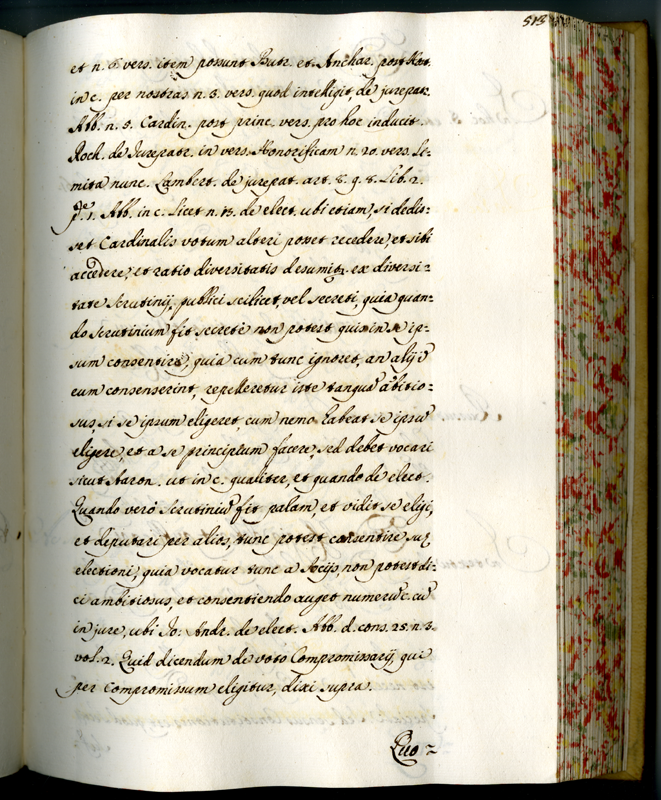 513
et n. 6. vers. item possunt Butr. et Anchar. post Host.
in c. per nostras n. 3. vers. quod intelligit, de jurepatr.
Abb. n. 3. Cardin. post princ. vers. pro hoc inducit.
Roch. de Jurepatr. in vers. Honorificam n. 20. vers. Li-
mita nunc. Lambert. de jurepat. art. 8. q. 8. Lib. 2.
p.e 1. Abb. in c. Licet n. 13. de elect. ubi etiam, si dedis-
set Cardinalis votum alteri posset recedere, et sibi
accedere, et ratio diversitatis desumitr. ex diversi-
tate Scrutinij, publici scilicet, vel secreti, quia quan-
do scrutinium fit secretè non potest quis in se ip-
sum consentire, quia cum tunc ignoret, an alij in
eum consenserint, repelleretur iste tanquã ãbitio-
sus, si se ipsum eligeret cum nemo habeat se ipsũ
eligere, et a se principium facere, sed debet vocari
sicut Aaron. ut in c. qualiter, et quando de elect.
Quando verò Scrutiniũ fit palam, et vidit se eligi,
et deputari per alios, tunc potest consentire suę
electioni, quia vocatur tunc a Socijs, non potest di-
ci ambitiosus, et consentiendo auget numerũ c. cũ
in jure, ubi Jo: Andr. de elect. Abb. d. cons. 25. n. 3.
vol. 2. Quid dicendum de voto Compromissarij, qui
per compromissum eligitur, dixi supra.
Quo-